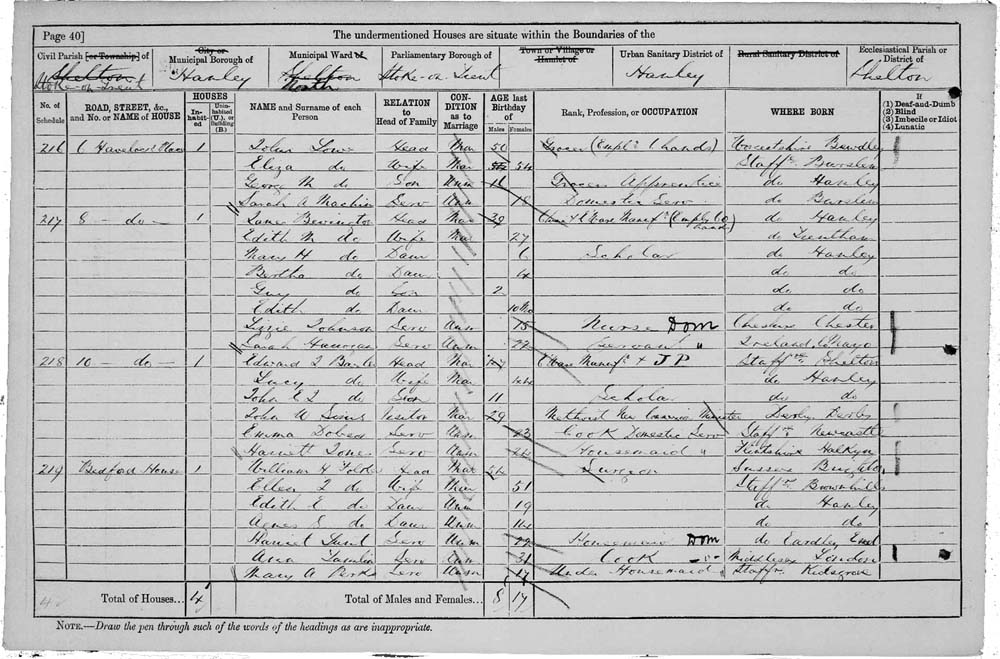 Page 40] The undermentioned Houses are situate within the Boundaries of the
Civil Parish [or Township] of | City or Municipal Borough of | Municipal Ward of | Parliamentary Borough of | Town or Village or Hamlet of | Urban Sanitary District of | Rural Sanitary District of | Ecclesiastical Parish or District of
Shelton Stoke-on-Trent | Hanley | Shelton North | Stoke-on-Trent | Hanley | Shelton
No. of Schedule | ROAD, STREET, &c., and No. or NAME of HOUSE | HOUSES Inhabited | Uninhabited (U.), or Building (B.) | NAME and Surname of each Person | RELATION to Head of Family | CONDITION as to Marriage | AGE last Birthday of Males Females | Rank, Profession, or OCCUPATION | WHERE BORN | If (1) Deaf-and-Dumb (2) Blind (3) Imbecile or Idiot (4) Lunatic
216 6 Havelock Place 1 John Head Mar 50 Grocer (Empl. hands) Worcestshire Bewdley
Eliza do Wife Mar 54 Staffs Burslem
George M do Son Unm 16 Grocers Apprentice do Hanley
Sarah A Machin Serv Unm 18 Domestic Serv do Burslem
217 8 do 1 Bevington Head Mar 39 Manuf do Hanley
Edith M do Wife Mar 27 do Trentham
Mary H do Daur 6 Scholar do Hanley
Bertha do Daur 4 do do
Guy do Son 2 do do
Edith do Daur 10 Mo do do
Lizzie Johnson Serv Unm 15 Nurse Dom Cheshire Chester
Sarah Serv Unm 22 Servant " Ireland Mayo
218 10 do 1 Edward J Head Mar Manufr + JP Staffs Shelton
Lucy do Wife Mar 44 do Hanley
John do Son 11 Scholar do do
John W Visitor Mar 29 Methodist New Minister Derby
Emma Serv Unm 23 Cook Domestic Serv Staffs Newcastle
Harriett Jones Serv Unm 24 Housemaid " Flintshire Halkyn
219 Bedford House 1 William H Folder Head Mar Surgeon Sussex Brighton
Ellen J do Wife Mar 51 Staffs Brownhills
Edith E do Daur Unm 19 do Hanley
Agnes E do Daur Unm 14 do do
Serv Unm 22 Housemaid Dom do
Serv Unm 31 Cook Middlesex London
Mary A Perks Serv Unm 17 Under Housemaid Staffs Kidsgrove
Total of Houses... 4 Total of Males and Females... 8 17
NOTE.—Draw the pen through such of the words of the headings as are inappropriate.